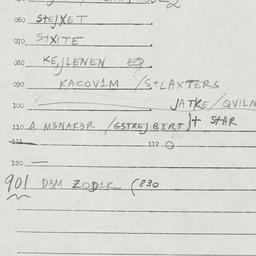 060 STEJXET
070 STXITE
080 KEJLENEN EQ
090 KACOV1M / STLAXTERS
100 JATKE / QVILN
110 A M3NAK3R / G3TREJ B3RT) + STAR
111 112
120 —
901 D3M ZOD1K (830